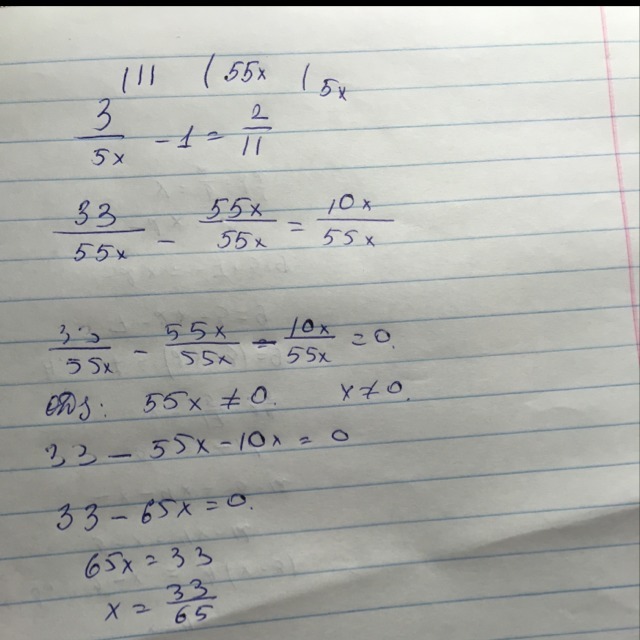 |11 (55x (5x
3/5x - 1 = 2/11
33/55x - 55x/55x = 10x/55x
33/55x - 55x/55x - 10x/55x = 0.
одз: 55x ≠ 0. x ≠ 0.
33 - 55x - 10x = 0
33 - 65x = 0.
65x = 33
x = 33/65